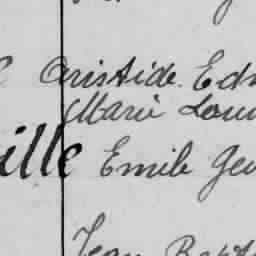 Aristide Edm
Marie Loui
ille Emile Geo
Jean Bapt